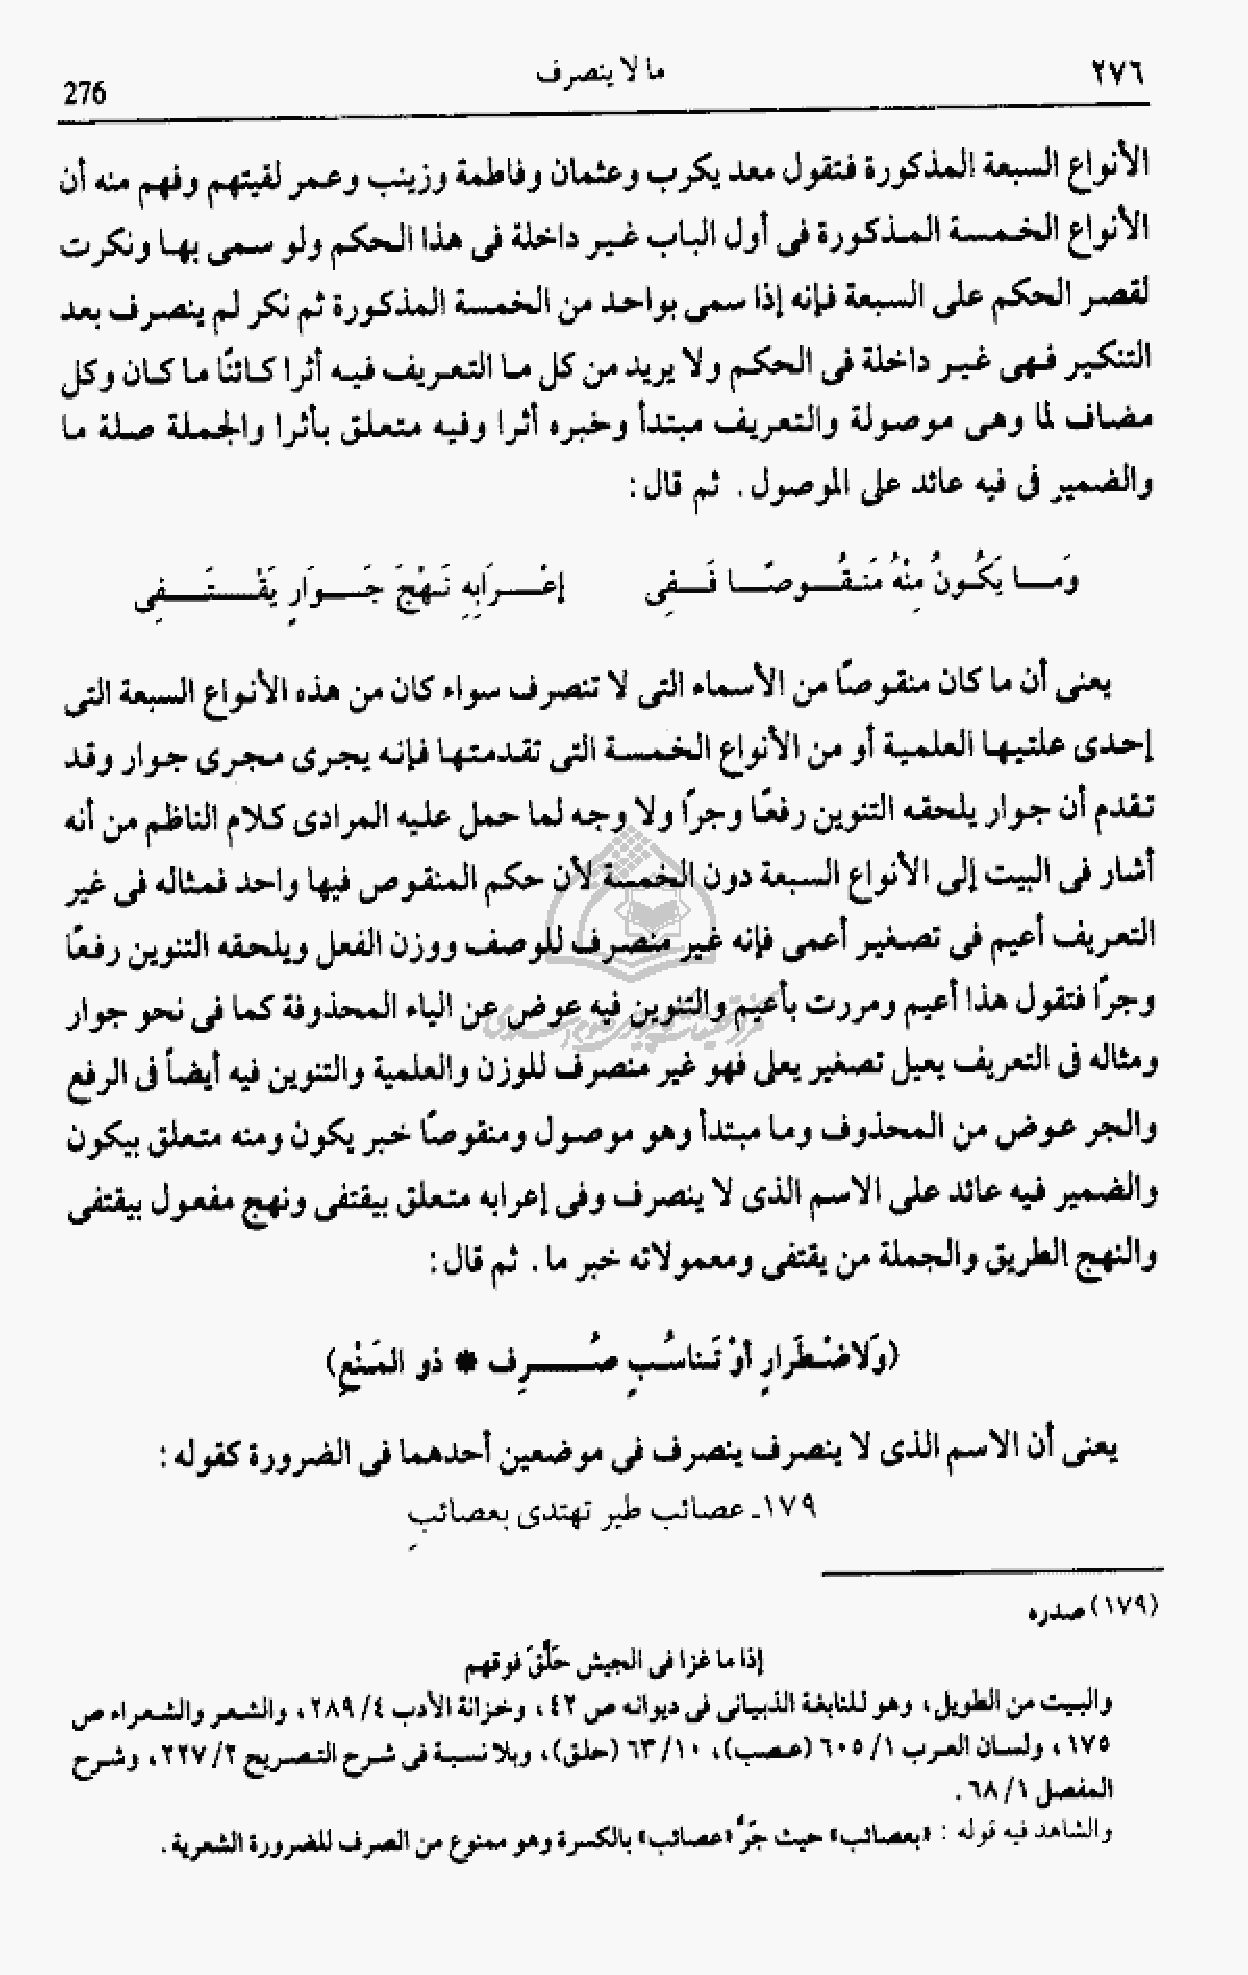 ٢٧٦
ما لا ينصرف
276
الأنواع السبعة المذكورة فتقول معد يكرب وعثمان وفاطمة وزينب وعمر لقيتهم وفهم منه أن
الأنواع الخمسة المذكورة فى أول الباب غير داخلة فى هذا الحكم ولو سمى بها ونكرت
لقصر الحكم على السبعة فإنه إذا سمى بواحد من الخمسة المذكورة ثم نكر لم ينصرف بعد
التنكير فهى غير داخلة فى الحكم ولا يريد من كل ما التعريف فيه أثرا كائنًا ما كان وكل
مضاف لما وهى موصولة والتعريف مبتدأ وخبره أثرا وفيه متعلق بأثرا والجملة صلة ما
والضمير فى فيه عائد على الموصول . ثم قال :
وَمَا يَكُونُ مِنْهُ مَنْقُوصًا فَفِى إعْرَابِهِ نَهْجَ جَوَارٍ يَقْتَفِى
يعنى أن ما كان منقوصًا من الأسماء التى لا تنصرف سواء كان من هذه الأنواع السبعة التى
إحدى علتيها العلمية أو من الأنواع الخمسة التى تقدمتها فإنه يجرى مجرى جوار وقد
تقدم أن جوار يلحقه التنوين رفعًا وجرًا ولا وجه لما حمل عليه المرادى كلام الناظم من أنه
أشار فى البيت إلى الأنواع السبعة دون الخمسة لأن حكم المنقوص فيها واحد فمثاله فى غير
التعريف أعيم فى تصغير أعمى فإنه غير منصرف للوصف ووزن الفعل ويلحقه التنوين رفعًا
وجرًا فتقول هذا أعيم ومررت بأعيم والتنوين فيه عوض عن الياء المحذوفة كما فى نحو جوار
ومثاله فى التعريف يعيل تصغير يعلى فهو غير منصرف للوزن والعلمية والتنوين فيه أيضاً فى الرفع
والجر عوض من المحذوف وما مبتدأ وهو موصول ومنقوصًا خبر يكون ومنه متعلق بيكون
والضمير فيه عائد على الاسم الذى لا ينصرف وفى إعرابه متعلق بيقتفى ونهج مفعول بيقتفى
والنهج الطريق والجملة من يقتفى ومعمولاته خبر ما . ثم قال :
(وَلاضْطَرارٍ أوْ تَناسُبٍ صُرِف * ذو المَنْعِ)
يعنى أن الاسم الذى لا ينصرف ينصرف فى موضعين أحدهما فى الضرورة كقوله :
١٧٩ـ عصائب طير تهتدى بعصائبِ
(١٧٩) صدره
إذا ما غزا فى الجيش حَلَّقَ فوقهم
والبيت من الطويل ، وهو للنابغة الذبيانى فى ديوانه ص ٤٢ ، وخزانة الأدب ٤/ ٢٨٩، والشعر والشعراء ص
١٧٥ ، ولسان العرب ١/ ٦٠٥ (عصب)، ١٠/ ٦٣ (حلق)، وبلا نسبة فى شرح التصريح ٢/ ٢٢٧، وشرح
المفصل ١/ ٦٨ .
والشاهد فيه قوله : «بعصائب» حيث جَرَّ «عصائب» بالكسرة وهو ممنوع من الصرف للضرورة الشعرية .